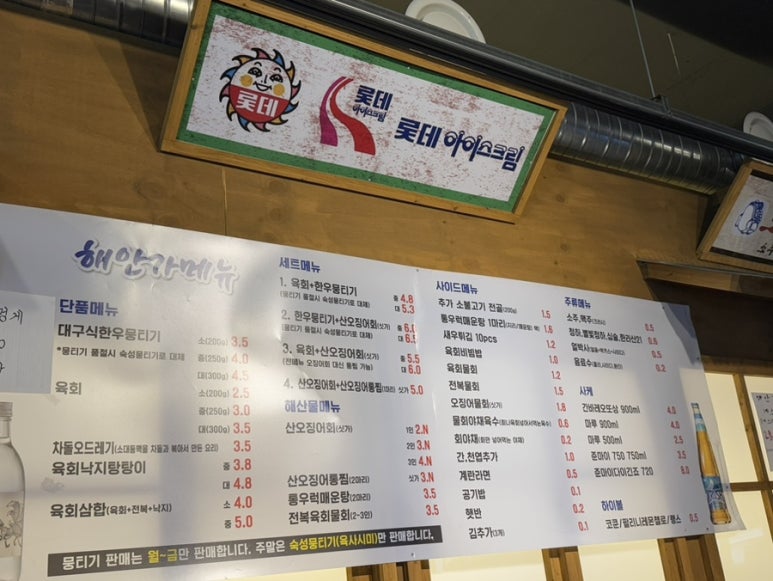 롯데
롯데
아이스크림
롯데 아이스크림
해안가메뉴
단품메뉴
대구식한우뭉티기 소(200g) 3.5
*뭉티기 품절시 숙성뭉티기로 대체 중(250g) 4.0
대(300g) 4.5
육회 소(200g) 2.5
중(250g) 3.0
대(300g) 3.5
차돌오드레기(소대동맥을 차돌과 볶아서 만든 요리) 3.5
육회낙지탕탕이 중 3.8
대 4.8
육회삼합(육회+전복+낙지) 소 4.0
중 5.0
세트메뉴
1. 육회+한우뭉티기 중 4.8
(뭉티기 품절시 숙성뭉티기로 대체) 대 5.3
2. 한우뭉티기+산오징어회(싯가) 중 6.0
(뭉티기 품절시 숙성뭉티기로 대체) 대 6.5
3. 육회+산오징어회(싯가) 중 5.5
(전메뉴 오징어회 대신 통찜 가능) 대 6.0
4. 산오징어회+산오징어통찜(1마리) 싯가 5.0
해산물메뉴
산오징어회(싯가) 1인 2.N
2인 3.N
3인 4.N
산오징어통찜(2마리) 싯가 3.N
통우럭매운탕(2마리) 3.5
전복육회물회(2~3인) 3.5
사이드메뉴
추가 소불고기 전골(200g) 1.5
통우럭매운탕 1마리(지리/매운탕) 택 1.8
새우튀김 10pcs 1.2
육회비빔밥 1.0
육회물회 1.2
전복물회 1.5
오징어물회(싯가) 1.8
물회야채육수 0.6
회야채 0.2
간.천엽추가 1.0
계란라면 0.5
공기밥 0.1
햇반 0.2
김추가(1개) 0.1
주류메뉴
소주,맥주 0.5
청하,별빛청하,심술,한라산21 0.6
얼박사 0.5
음료수 0.2
사케
간바레오또상 900ml 4.0
마루 900ml 4.0
마루 500ml 2.5
준마이 750 750ml 3.5
준마이다이긴죠 720 8.0
하이볼
0.5
뭉티기 판매는 월~금만 판매합니다. 주말은 숙성뭉티기(육사시미)만 판매합니다.